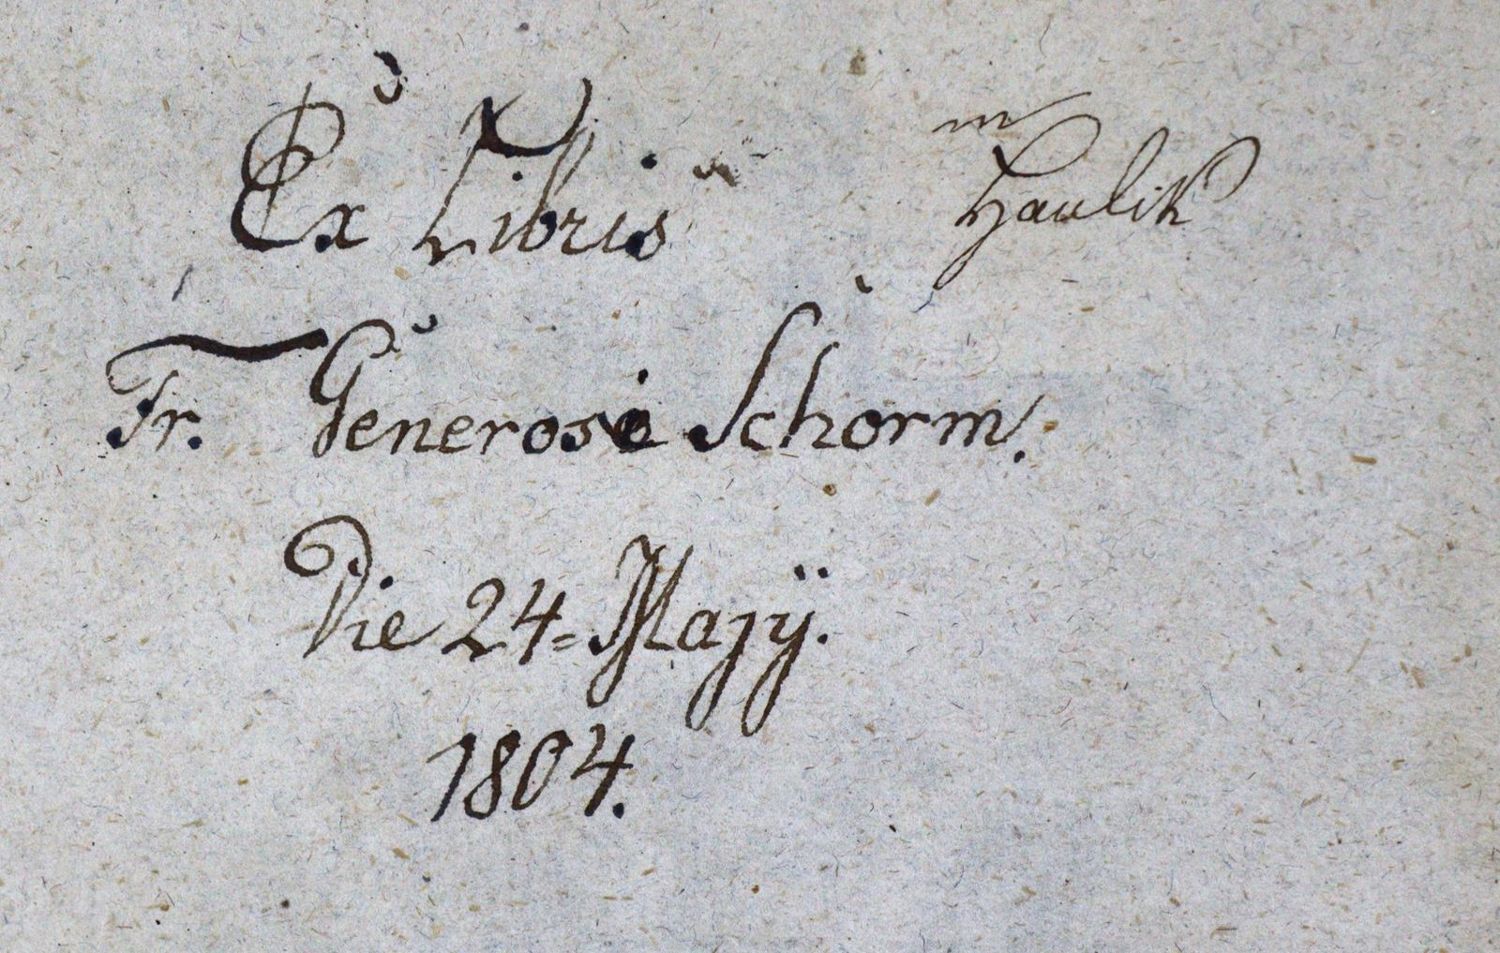 Ex Libris
m Haulik
Fr. Generosi Schorm.
Die 24= Majÿ.
1804.